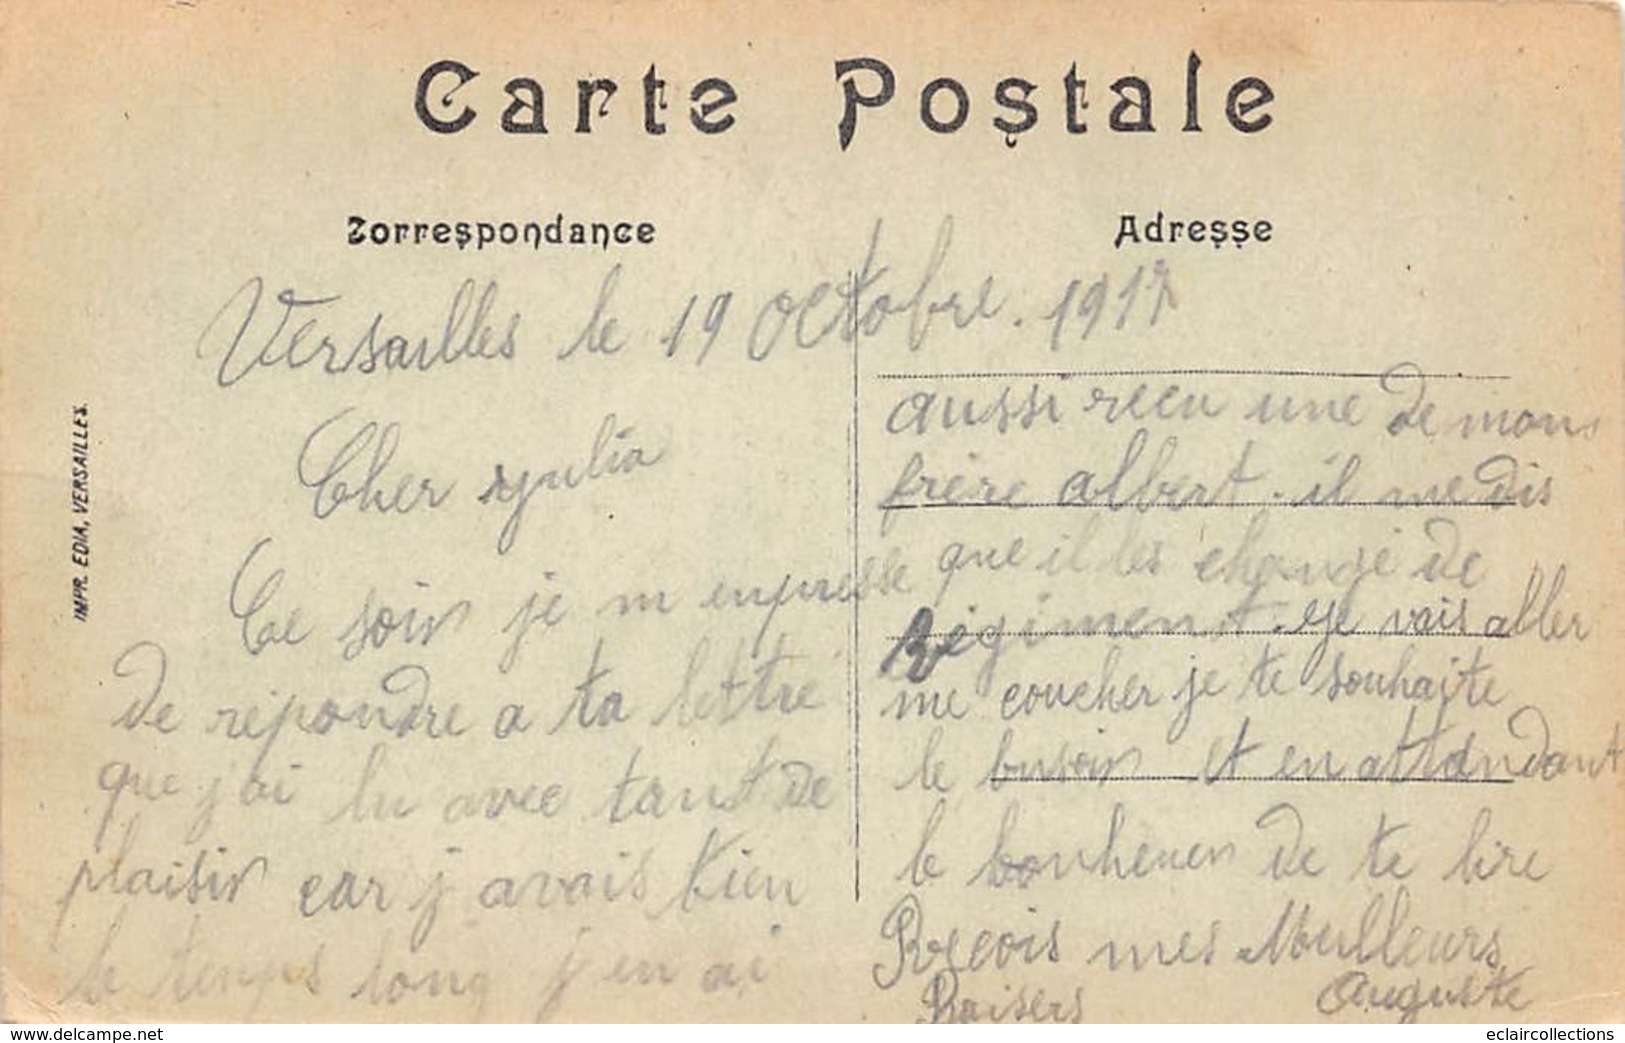 Carte Postale
Correspondance
Adresse
IMPR. EDIA, VERSAILLES.
Versailles le 19 Octobre. 1917
Cher Julia
Ce soir je m enpresse
de repondre a ta lettre
que j'ai lu avec tant de
plaisir car j avais bien
le temps long j en ai
aussi recu une de mons
frère albert. il me dis
que il les changé de
Régiment. Je vais aller
me coucher je te souhaite
le bnsoir et en attandant
le bonheuer de te lire
Recois mes Meulleurs
Baisers Auguste
www.delcampe.net
eclaircollections